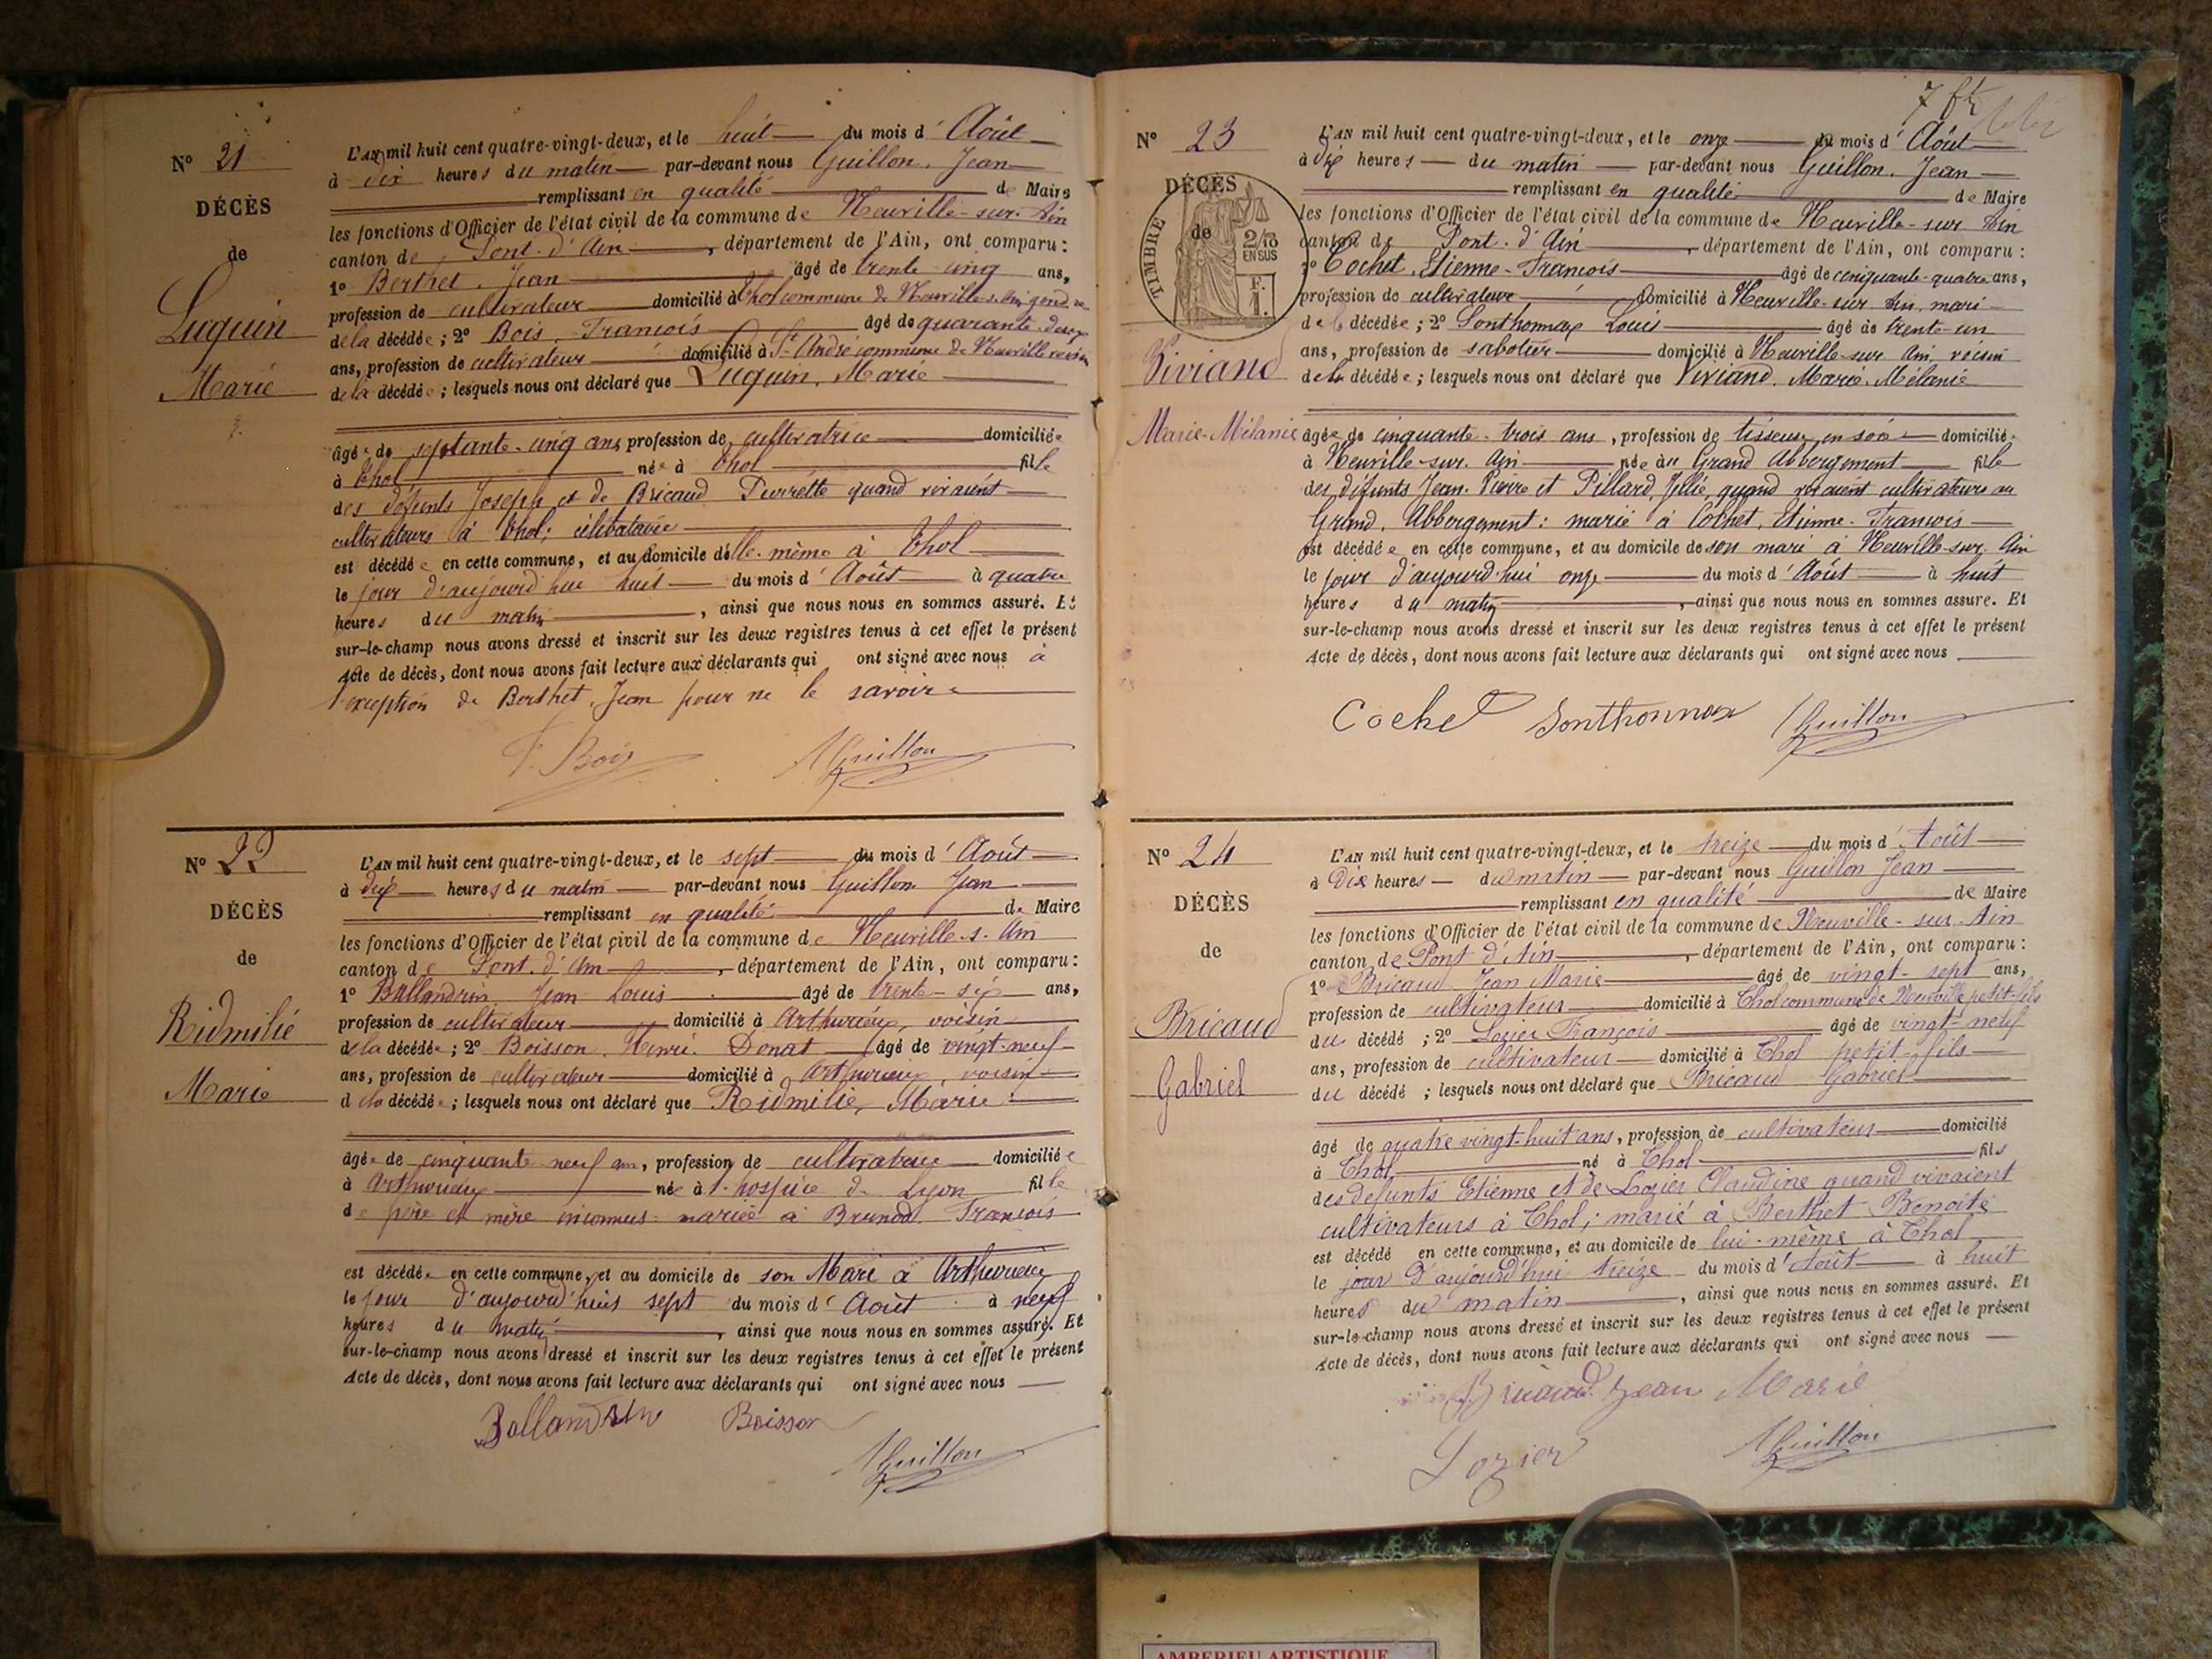 N° 21
DÉCÈS
de
Luquin
Marie
L'AN mil huit cent quatre-vingt-deux, et le huit du mois d'Août
à dix heures du matin par-devant nous Guillon, Jean
remplissant en qualité de Maire
les fonctions d'Officier de l'état civil de la commune de Neuville-sur-Ain
canton de Pont-d'Ain, département de l'Ain, ont comparu :
1° Berthet, Jean âgé de trente cinq ans,
profession de cultivateur domicilié à Thol commune de Neuville s. Ain
de la décédée ; 2° Bois, François âgé de quarante-deux
ans, profession de cultivateur domicilié à St André commune de Neuville voisin
de la décédée ; lesquels nous ont déclaré que Luquin, Marie
âgée de septante-cinq ans profession de cultivatrice domiciliée
à Thol née à Thol fille
des défunts Joseph et de Bricaud Pierrette quand vivaient
cultivateurs à Thol; célibataire
est décédée en cette commune, et au domicile d'elle-même à Thol
le jour d'aujourd'hui huit du mois d'Août à quatre
heures du matin, ainsi que nous nous en sommes assuré. Et
sur-le-champ nous avons dressé et inscrit sur les deux registres tenus à cet effet le présent
Acte de décès, dont nous avons fait lecture aux déclarants qui ont signé avec nous à
l'exception de Berthet, Jean pour ne le savoir
F. Bois Guillon
N° 22
DÉCÈS
de
Ridmilié
Marie
L'AN mil huit cent quatre-vingt-deux, et le sept du mois d'Août
à dix heures du matin par-devant nous Guillon Jean
remplissant en qualité de Maire
les fonctions d'Officier de l'état civil de la commune de Neuville-s-Ain
canton de Pont-d'Ain, département de l'Ain, ont comparu :
1° Ballandrin Jean Louis âgé de trente-six ans,
profession de cultivateur domicilié à Arthurieux, voisin
de la décédée ; 2° Boisson, Henri Donat âgé de vingt-neuf
ans, profession de cultivateur domicilié à Arthurieux, voisin
de la décédée ; lesquels nous ont déclaré que Ridmilié, Marie
âgée de cinquante neuf ans, profession de cultivatrice domiciliée
à Arthurieux née à l'hospice de Lyon fille
de père et mère inconnus mariée à Brunod François
est décédée en cette commune, et au domicile de son Mari à Arthurieux
le jour d'aujourd'huis sept du mois d'Août à neuf
heures du matin, ainsi que nous nous en sommes assuré. Et
sur-le-champ nous avons dressé et inscrit sur les deux registres tenus à cet effet le présent
Acte de décès, dont nous avons fait lecture aux déclarants qui ont signé avec nous
Ballandrin Boisson
Guillon
7
N° 23
DÉCÈS
de
TIMBRE
2/10
EN SUS
F.
1.
Viviand
Marie-Mélanie
L'AN mil huit cent quatre-vingt-deux, et le onze du mois d'Août
à dix heures du matin par-devant nous Guillon, Jean
remplissant en qualité de Maire
les fonctions d'Officier de l'état civil de la commune de Neuville-sur-Ain
canton de Pont-d'Ain, département de l'Ain, ont comparu :
1° Cochet, Etienne-François âgé de cinquante-quatre ans,
profession de cultivateur domicilié à Neuville-sur-Ain, mari
de la décédée ; 2° Sonthonnax Louis âgé de trente-un
ans, profession de sabotier domicilié à Neuville-sur-Ain, voisin
de la décédée ; lesquels nous ont déclaré que Viviand, Marie-Mélanie
âgée de cinquante-trois ans, profession de tisseuse en soie domiciliée
à Neuville-sur-Ain née au Grand Abbergement fille
des défunts Jean-Pierre et Pillard, quand vivaient cultivateurs au
Grand Abbergement : marié à Cochet, Etienne-François
est décédée en cette commune, et au domicile de son mari à Neuville-sur-Ain
le jour d'aujourd'hui onze du mois d'Août à huit
heures du matin, ainsi que nous nous en sommes assuré. Et
sur-le-champ nous avons dressé et inscrit sur les deux registres tenus à cet effet le présent
Acte de décès, dont nous avons fait lecture aux déclarants qui ont signé avec nous
Cochet Sonthonnax Guillon
N° 24
DÉCÈS
de
Bricaud
Gabriel
L'AN mil huit cent quatre-vingt-deux, et le treize du mois d'Août
à Dix heures du matin par-devant nous Guillon Jean
remplissant en qualité de Maire
les fonctions d'Officier de l'état civil de la commune de Neuville-sur-Ain
canton de Pont d'Ain, département de l'Ain, ont comparu :
1° Bricaud Jean Marie âgé de vingt-sept ans,
profession de cultivateur domicilié à Thol commune de Neuville petit-fils
du décédé ; 2° Lozier François âgé de vingt-neuf
ans, profession de cultivateur domicilié à Thol petit-fils
du décédé ; lesquels nous ont déclaré que Bricaud Gabriel
âgé de quatre vingt-huit ans, profession de cultivateur domicilié
à Thol né à Thol fils
des defunts Etienne et de Lozier Claudine quand vivaient
cultivateurs à Thol; marié à Berthet Benoite
est décédé en cette commune, et au domicile de lui-même à Thol
le jour d'aujourd'hui treize du mois d'Août à huit
heures du matin, ainsi que nous nous en sommes assuré. Et
sur-le-champ nous avons dressé et inscrit sur les deux registres tenus à cet effet le présent
Acte de décès, dont nous avons fait lecture aux déclarants qui ont signé avec nous
Bricaud Jean Marie
Lozier Guillon
AMBERIEU ARTISTIQUE